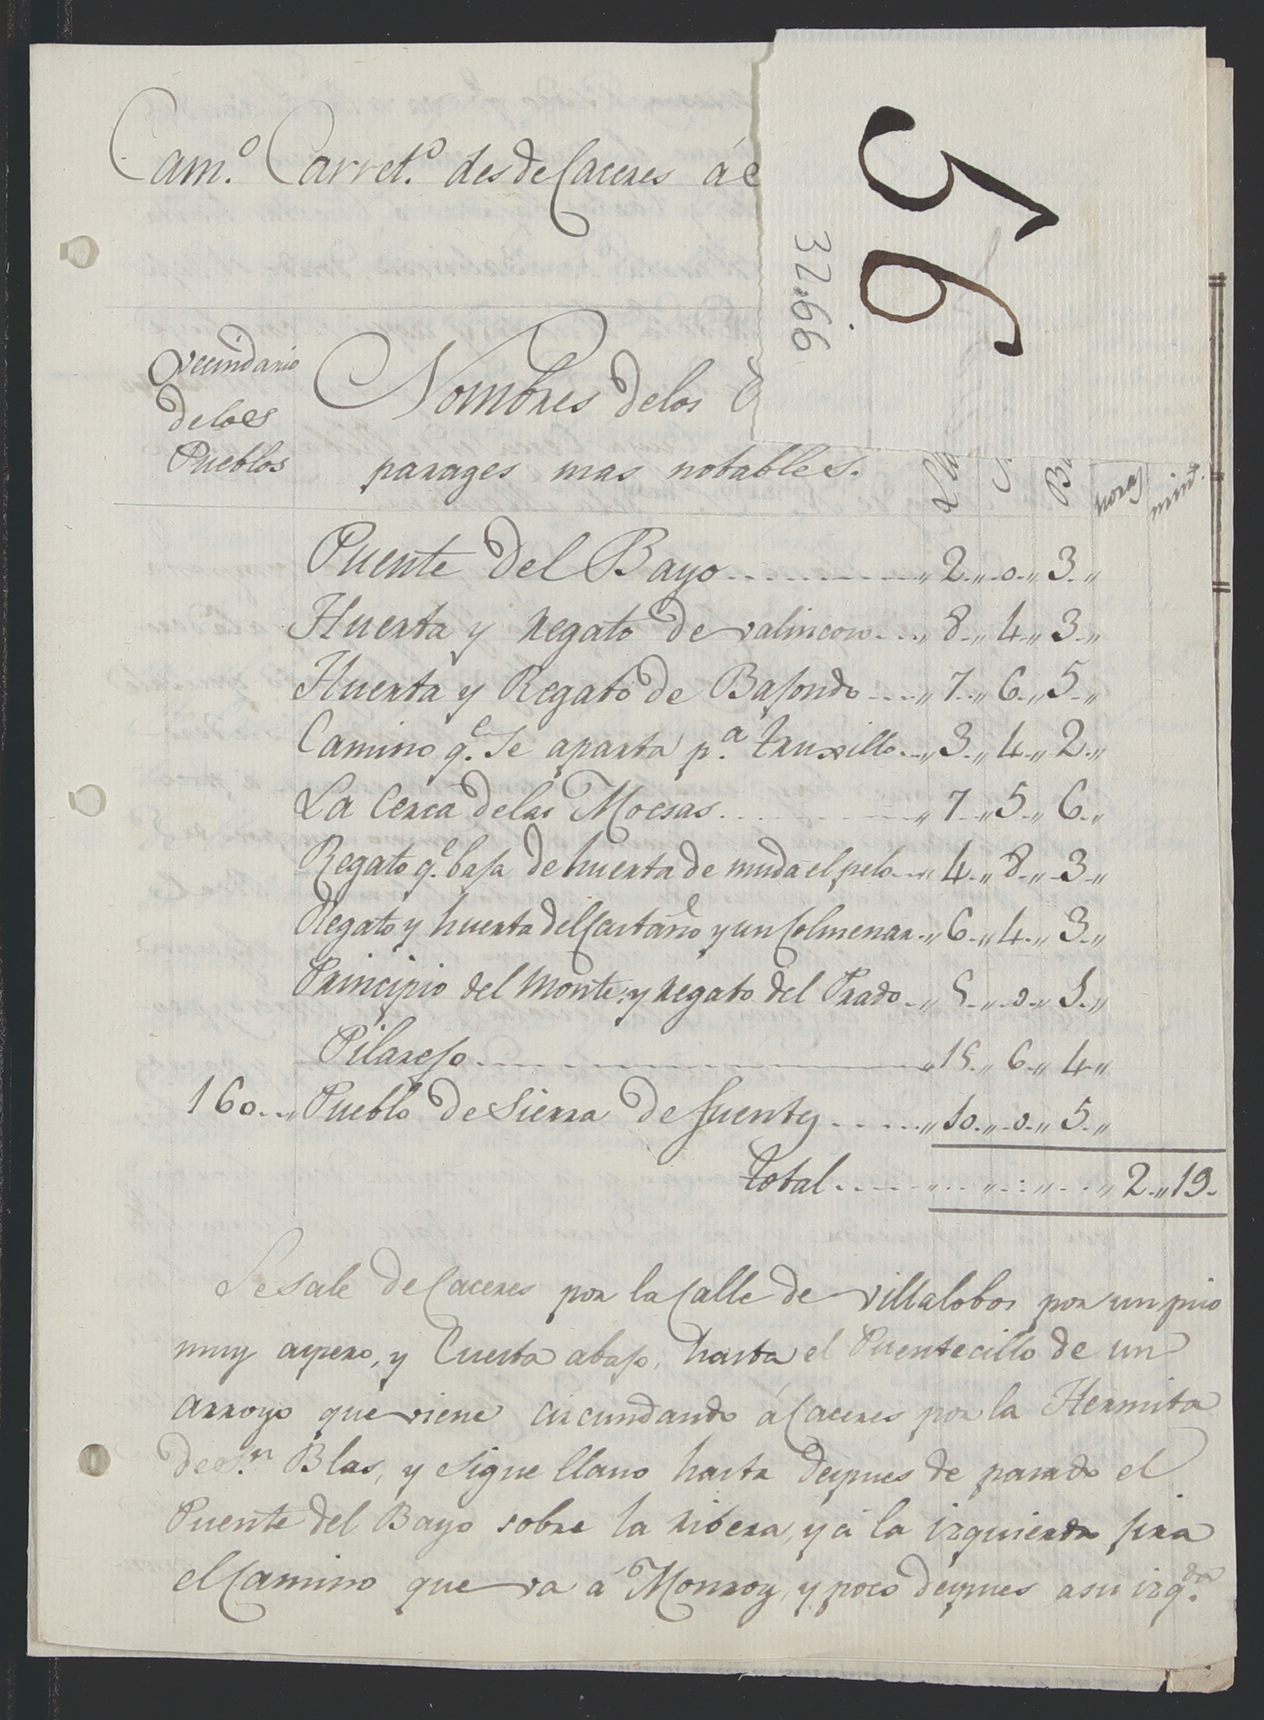 56
32.66
Cam.º Carret.º desde Caceres á
Vecindario de los Pueblos
Nombres de los
parages mas notables.
horas mint.
Puente del Bayo 2 0 3
Huerta y Regato de valrincon 8 4 3
Huerta y Regato de Bajondo 7 6 5
Camino q.e Se aparta p.a Truxillo 3 4 2
La Cerca de las Moesas 7 5 6
Regato q.e baja de huerta de muda el pelo 4 8 3
Regato y huerta del Castaño y un Colmenar 6 4 3
Principio del Monte, y Regato del Prado 5 0 5
Pilarejo 15 6 4
160 Pueblo de Sierra de fuentes 10 0 5
Total 2 19
Se sale de Caceres por la Calle de villalobos por un piso
muy aspero, y Cuesta abajo, hasta el Puentecillo de un
arroyo que viene circundando á Caceres por la Hermita
de S.n Blas, y sigue llano hasta despues de pasado el
Puente del Bayo sobre la ribera, y á la izquierda jira
el Camino que va á Monroy, y poco despues a su izq.da